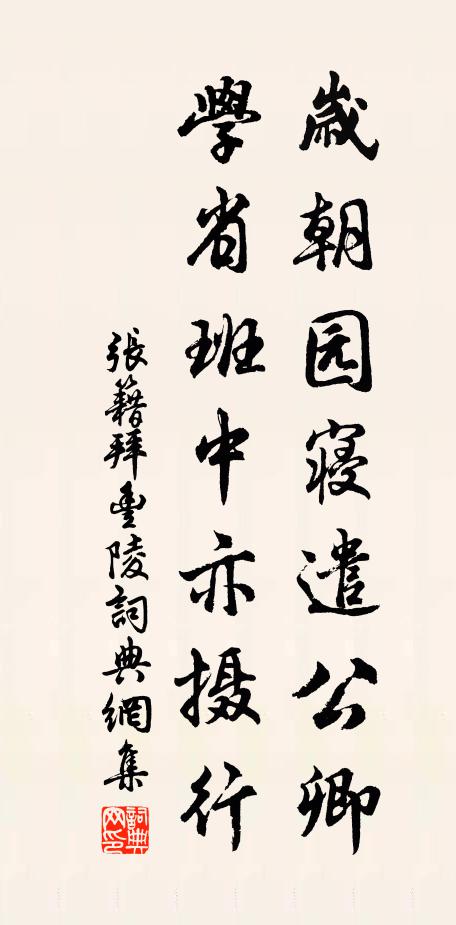 歲朝园寝遣公卿
學省班中亦摄行
張籍拜豐陵詞典網集
詞典网印